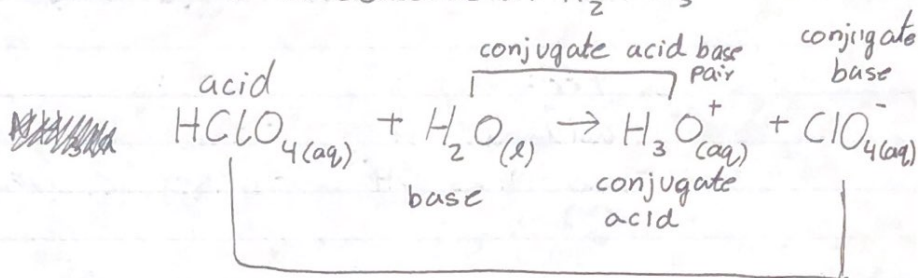 conjugate acid base pair
conjugate base
acid
HClO₄(aq) + H₂O(l) → H₃O⁺(aq) + ClO₄⁻(aq)
base
conjugate acid